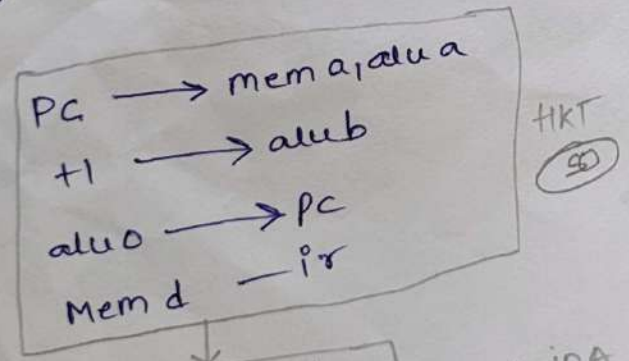 PC → mem a, alu a
+1 → alu b
alu o → PC
Mem d — ir
HKT
in A